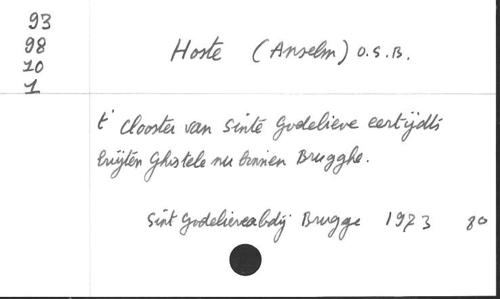 93
98
10
1
Hoste (Anselm) O.S.B.
t' Clooster van Sinte Godelieve eertijdts
buijten Ghistele nu binnen Brugghe.
Sint Godelieveabdij Brugge 1973 80